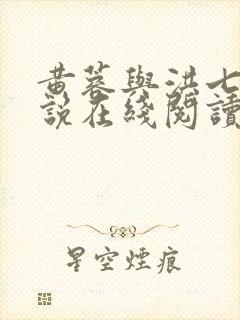 黄蓉與洪七
說在綫閱讀
星空煙痕